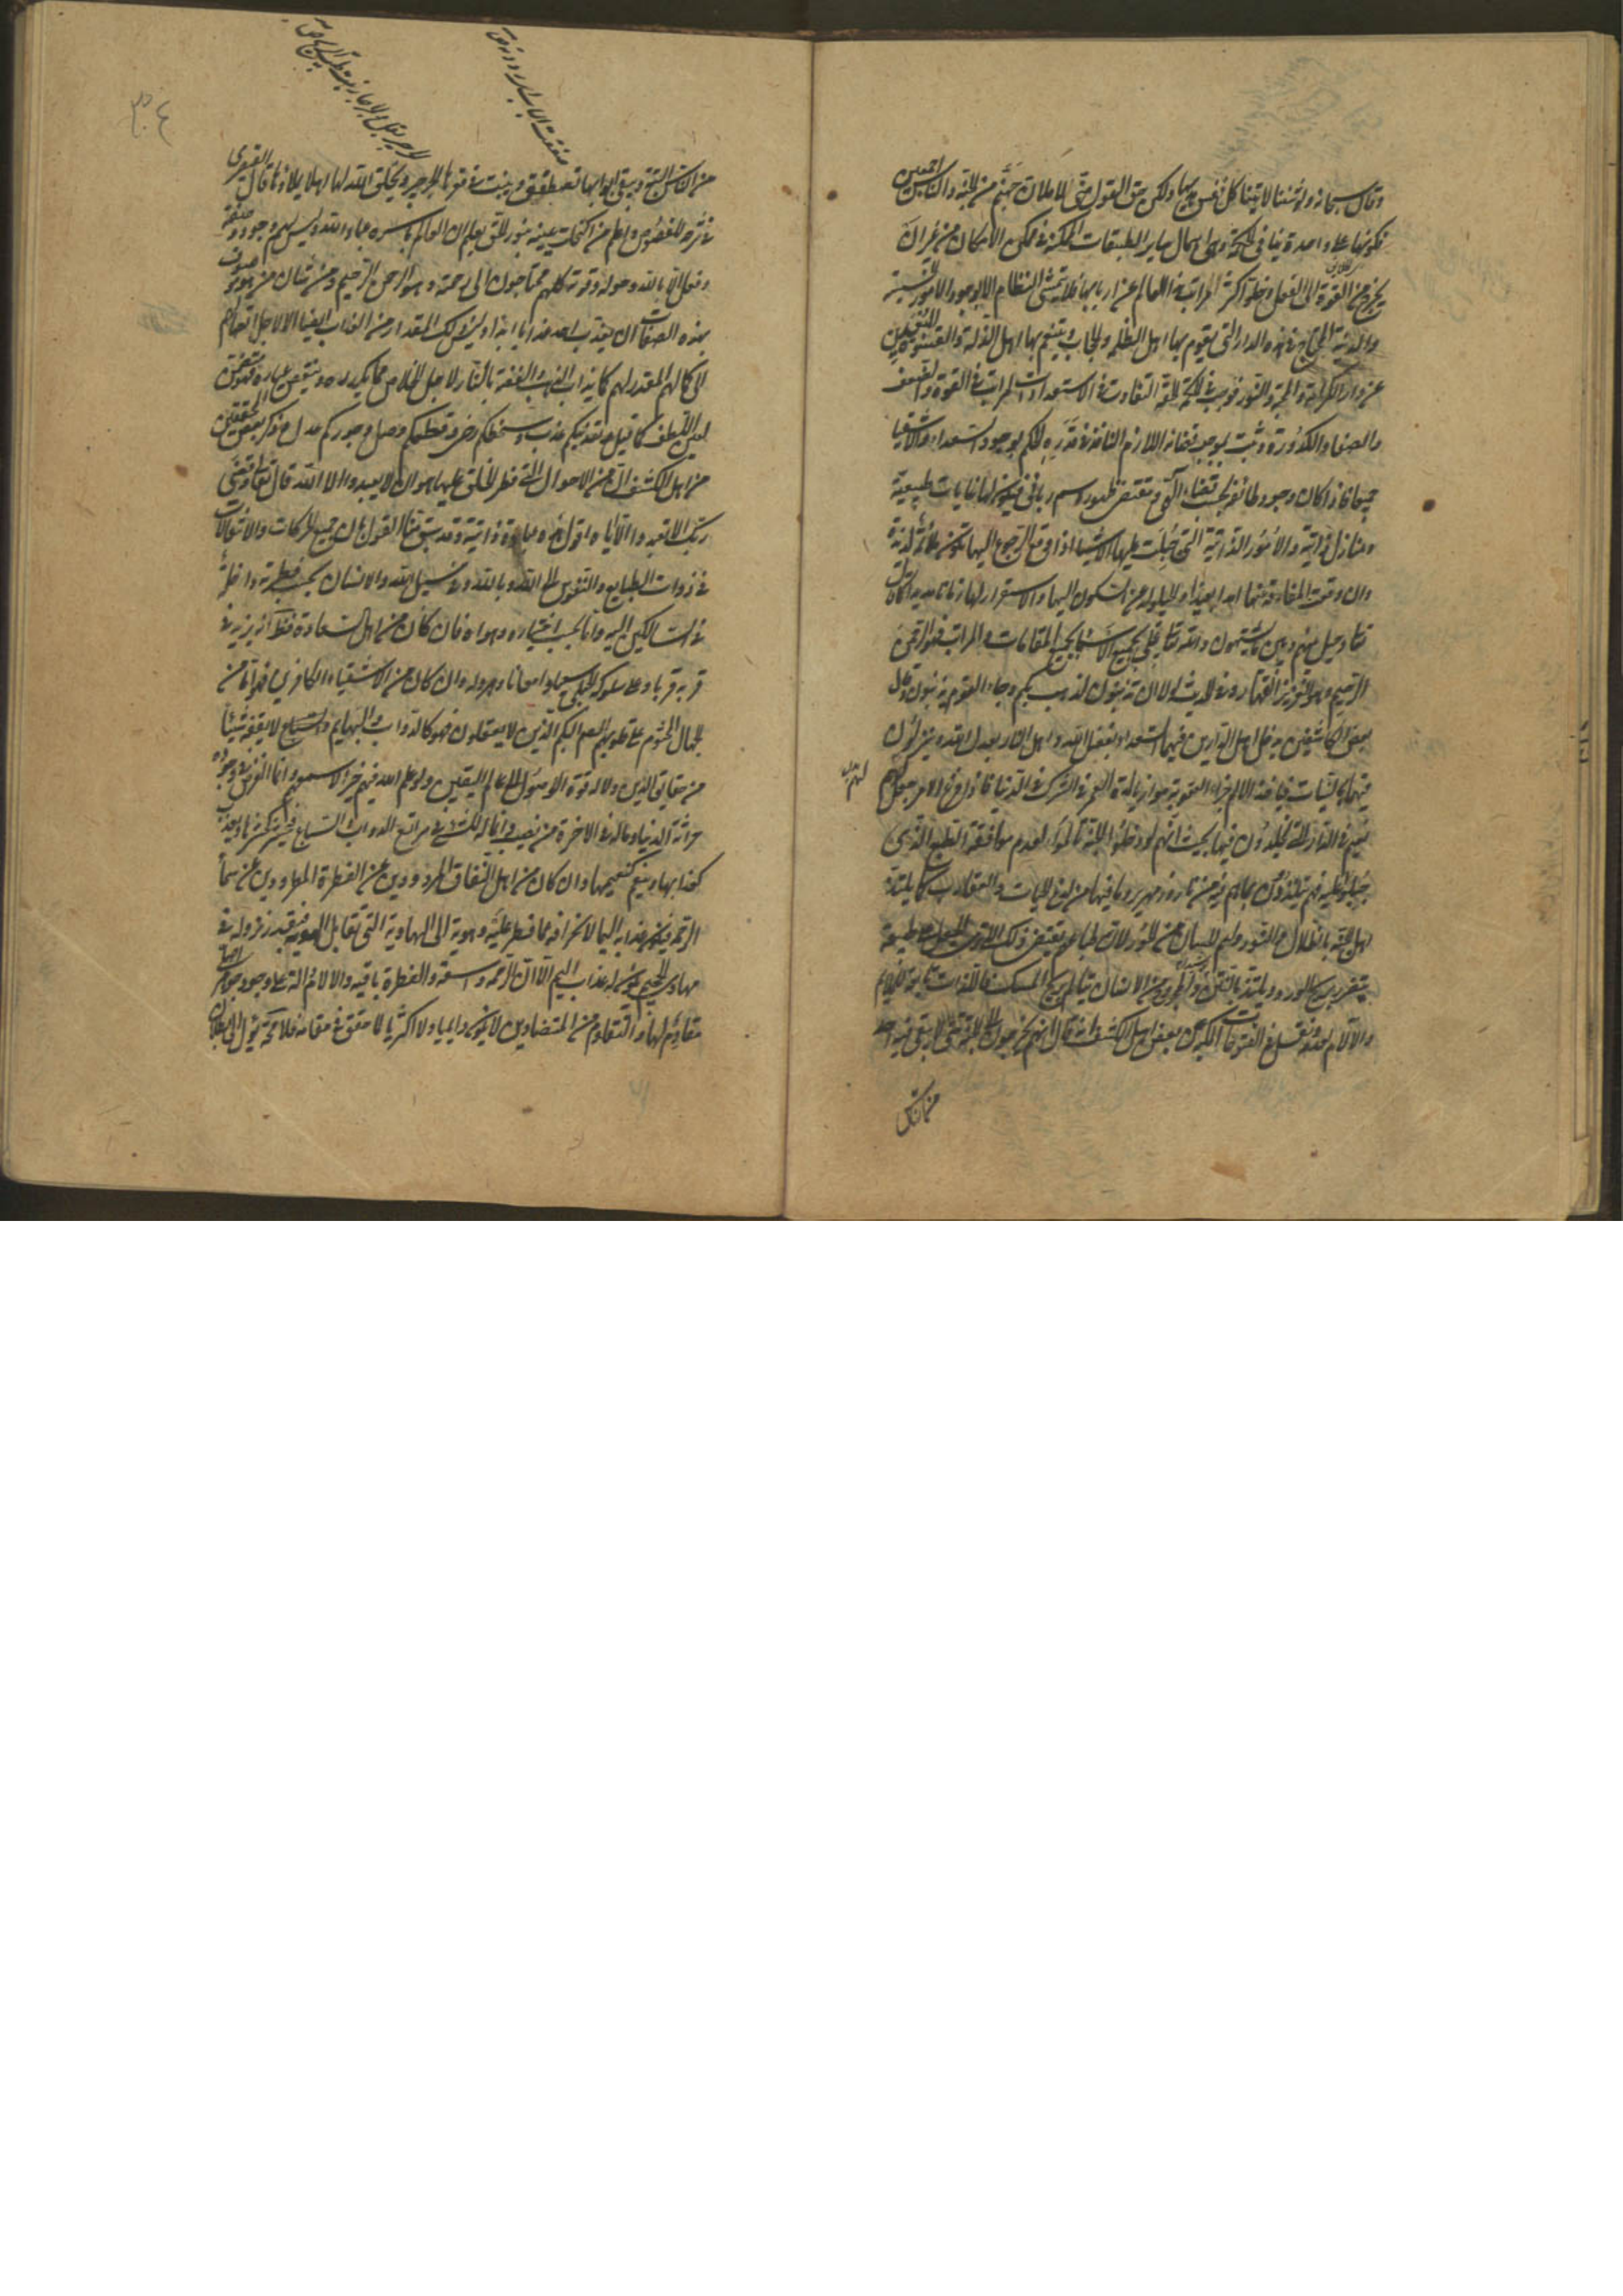 وقال سبحانه ولو شئنا لآتينا كل نفس هديها ولكن حق القول منى لاملان جهنم من الجنة والناس اجمعين
فكونها على واحدة ينافى الحكمة وهى اهمال ساير الطبقات الممكنة فى مكمن الامكان من غير ان
يخرج من القوة الى الفعل وخلو اكثر المراتب فى العالم عن اربابها فلا يتمشى النظام الا بوجود الامور الخسيسة
والدنية المحتاج فى هذه الدار التى يقوم بها اهل الظلمة والحجاب ويتنعم بها اهل الذلة والقسوة المبعدين
عن دار الكرامة والمحبة والنور فوجب فى الحكمة الحقة التفاوت فى الاستعدادات لمراتب فى القوة والضعف
والصفاء والكدورة وثبت بموجب قضائه اللازم النافذ فى قدره الحكم بوجود السعداء والاشقياء
جميعا فاذا كان وجود طائفة بحسب قضاء الهى ومقتضى ظهور اسم ربانى فيكون لها غايات طبيعية
ومنازل ذاتية والامور الذاتية التى جبلت عليها الاشياء اذا وقع الرجوع اليها تكون ملائمة لذيذة
وان وقعت المفارقة عنها امدا بعيدا والحيلولة عن السكون اليها والاستقرار لها زمانا مديدا كما قال
تعالى وحيل بينهم وبين ما يشتهون والله تعالى تجلى بجميع الاسماء لجميع المقامات والمراتب فهو الرحمن
الرحيم وهو العزيز القهار وفى الحديث لولا ان تذنبون لذهب بكم وجاء بقوم يذنبون وقال
بعض المكاشفين يدخل اهل الدارين فيهما السعداء بفضل الله واهل النار بعدل الله وينزلون
فيهما بالنيات فياخذ الالم جزاء العقوبة موازيا لمدة العمر فى الشرك فى الدنيا فاذا فرغ الامد جعل لهم
نعيم فى الدار التى يخلدون فيها بحيث انهم لو دخلوا الجنة تالموا لعدم موافقة الطبع الذى
جبلوا عليه فهم يتلذذون بما هم فيه من نار وزمهرير وما فيها من لدغ الحيات والعقارب كما يلتذ
اهل الجنة بالظلال والنور ولثم الحسان من الحور لان طباعهم يقتضى ذلك الا ترى الجعل على طبيعة
يتضرر بريح الورد ويلتذ بالنتن والمحرور من الانسان يتالم بريح المسك فاللذات تابعة للملايم
والالام لعدمه ونقل فى الفتوحات المكية عن بعض اهل الكشف انه قال انهم يخرجون الى الجنة حتى لا يبقى فيها احد
من الناس
من الناس البتة ويبقى ابوابها تصطفق وينبت فى قعرها الجرجير ويخلق الله لها اهلا يملاها قال القيصرى
فى شرح الفصوص واعلم من اكتحلت عينه بنور الحق يعلم ان العالم باسره عباد الله وليس لهم وجود وصفة
وفعل الا بالله وحوله وقوته وكلهم محتاجون الى رحمته وهو الرحمن الرحيم ومن شان من هو موصوف
بهذه الصفات ان لا يعذب احدا عذابا ابدا وليس ذلك المقدار من العذاب ايضا الا لاجل ايصالهم
الى كمالهم المقدر لهم كما يذاب الذهب والفضة بالنار لاجل الخلاص مما يكدره وينقص عياره فهو متضمن
لعين اللطف كما قيل وتعذيبكم عذب وسخطكم رضى وقطعكم وصل وجوركم عدل وذكر بعض المحققين
من اهل الكشف ان من الاحوال التى فطر الخلق عليها هو ان لا يعبدوا الا الله قال تعالى وقضى
ربك الا تعبدوا الا اياه اقول هذه عبادة ذاتية وقد سبق منا القول بان جميع الحركات والانتقالات
فى ذوات الطبايع والنفوس الى الله وبالله وفى سبيل الله والانسان بحسب فطرته داخل
فى السالكين اليه واما بحسب اختياره وهواه فان كان من اهل السعادة فيزيد فى
قربه قربا وعلى سلوكه الجبلى سعيا وامعانا وهرولة وان كان من الاشقياء الكافرين فهو اما من
الجهال المختوم على قلوبهم الصم البكم الذين لا يعقلون فهو كالدواب والبهايم والسباع لا يفقه شيئا
من حقايق الدين ولا له قوة الوصول الى عالم اليقين ولو علم الله فيهم خيرا لاسمعهم وانما الغرض فى وجوده
حراثة الدنيا وماله فى الاخرة من نصيب وانما له المشى فى مراتع الدواب والسباع فيحشر كحشرها ويعذب
كعذابها وينعم كنعيمها وان كان من اهل النفاق المردودين عن الفطرة المطرودين عن سماء
الرحمة فيكون عذابه اليما لانحرافه عما فطر عليه وهويه الى الهاوية التى تقابل الهوية فبقدر نزوله فى
مهاوى الجحيم يكون له عذاب اليم الا ان الرحمة واسعة والفطرة باقية والالام دالة على وجود جوهر اصلى
مقاوم لها والتقاوم من المتضادين لا يكون دايميا ولا اكثريا لما حقق فى مقامه فلا محة يؤل الى بطلان